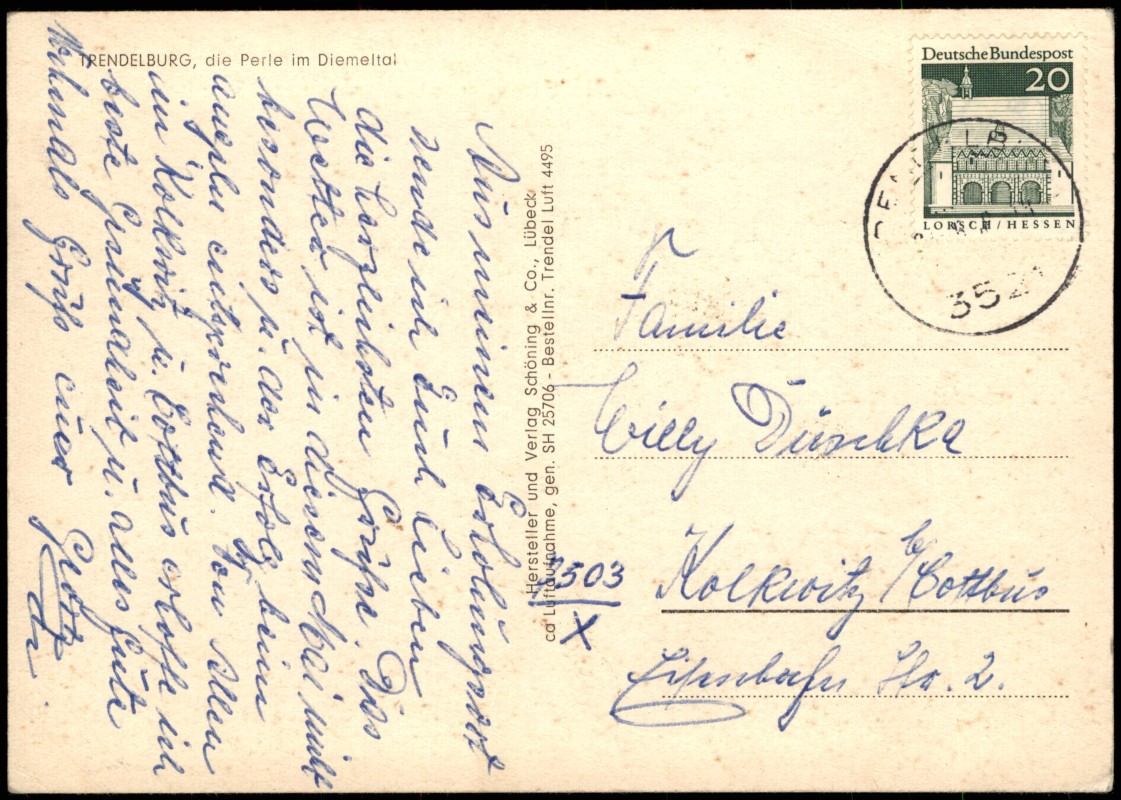 TRENDELBURG, die Perle im Diemeltal
Aus meinem Erholungsort
sende ich Euch Lieben
die herzlichsten Grüße. Das
Wetter ist in diesem Mai nicht
besonders u. der Erfolg kein
entsprechend. Von Allen
in Kolkwitz u. Cottbus erhoffe ich
beste Gesundheit u. alles Gute
Nochmals Grüße euer
Hersteller und Verlag Schöning & Co., Lübeck
ca Luftaufnahme, gen. SH 25706 - Bestellnr. Trendel Luft 4495
Deutsche Bundespost
20
LORSCH/HESSEN
352
Familie
Willy Duschka
7503
X
Kolkwitz/Cottbus
Eisenbahn Str. 2.